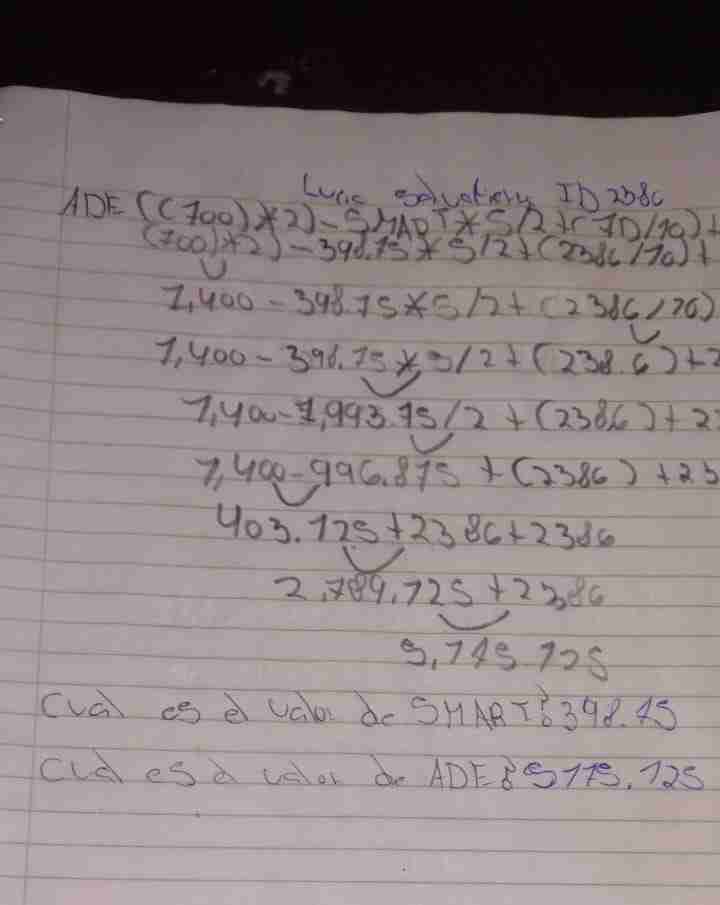 ID 2386
ADE ((700)*2)-SMART*5/2+(ID/10)+
(700)*2)-398.75*5/2+(2386/10)+
1,400-398.75*5/2+(2386/10)
1,400-398.75*5/2+(238.6)+2
1,400-1,993.75/2+(2386)+23
1,400-996.875+(2386)+23
403.125+2386+2386
2,789.125+2386
5,175.125
Cual es el valor de SMART? 398.75
Cual es el valor de ADE? 5175.125